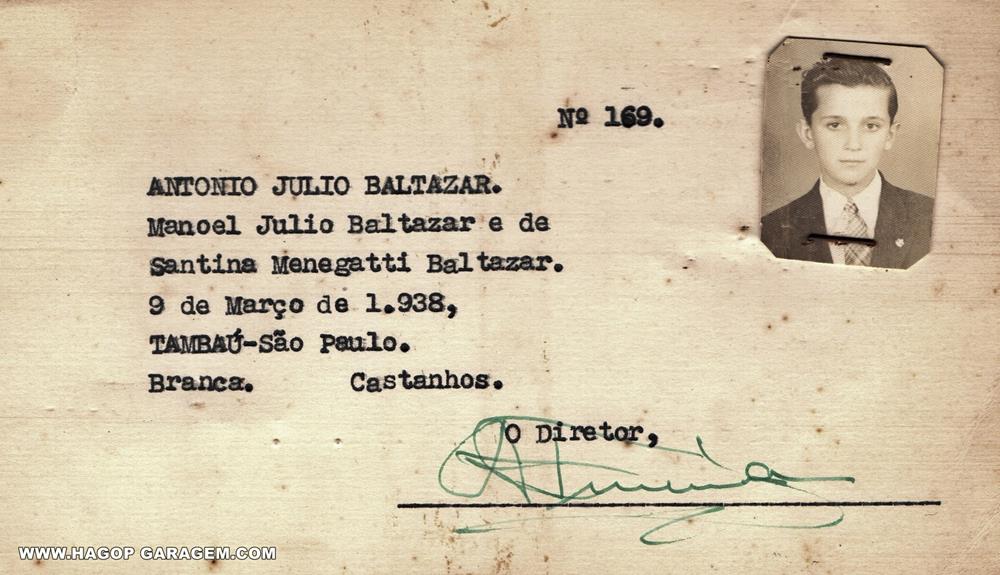 Nº 169.
ANTONIO JULIO BALTAZAR.
Manoel Julio Baltazar e de
Santina Menegatti Baltazar.
9 de Março de 1.938,
TAMBAÚ-São Paulo.
Branca. Castanhos.
O Diretor,
WWW.HAGOP GARAGEM.COM